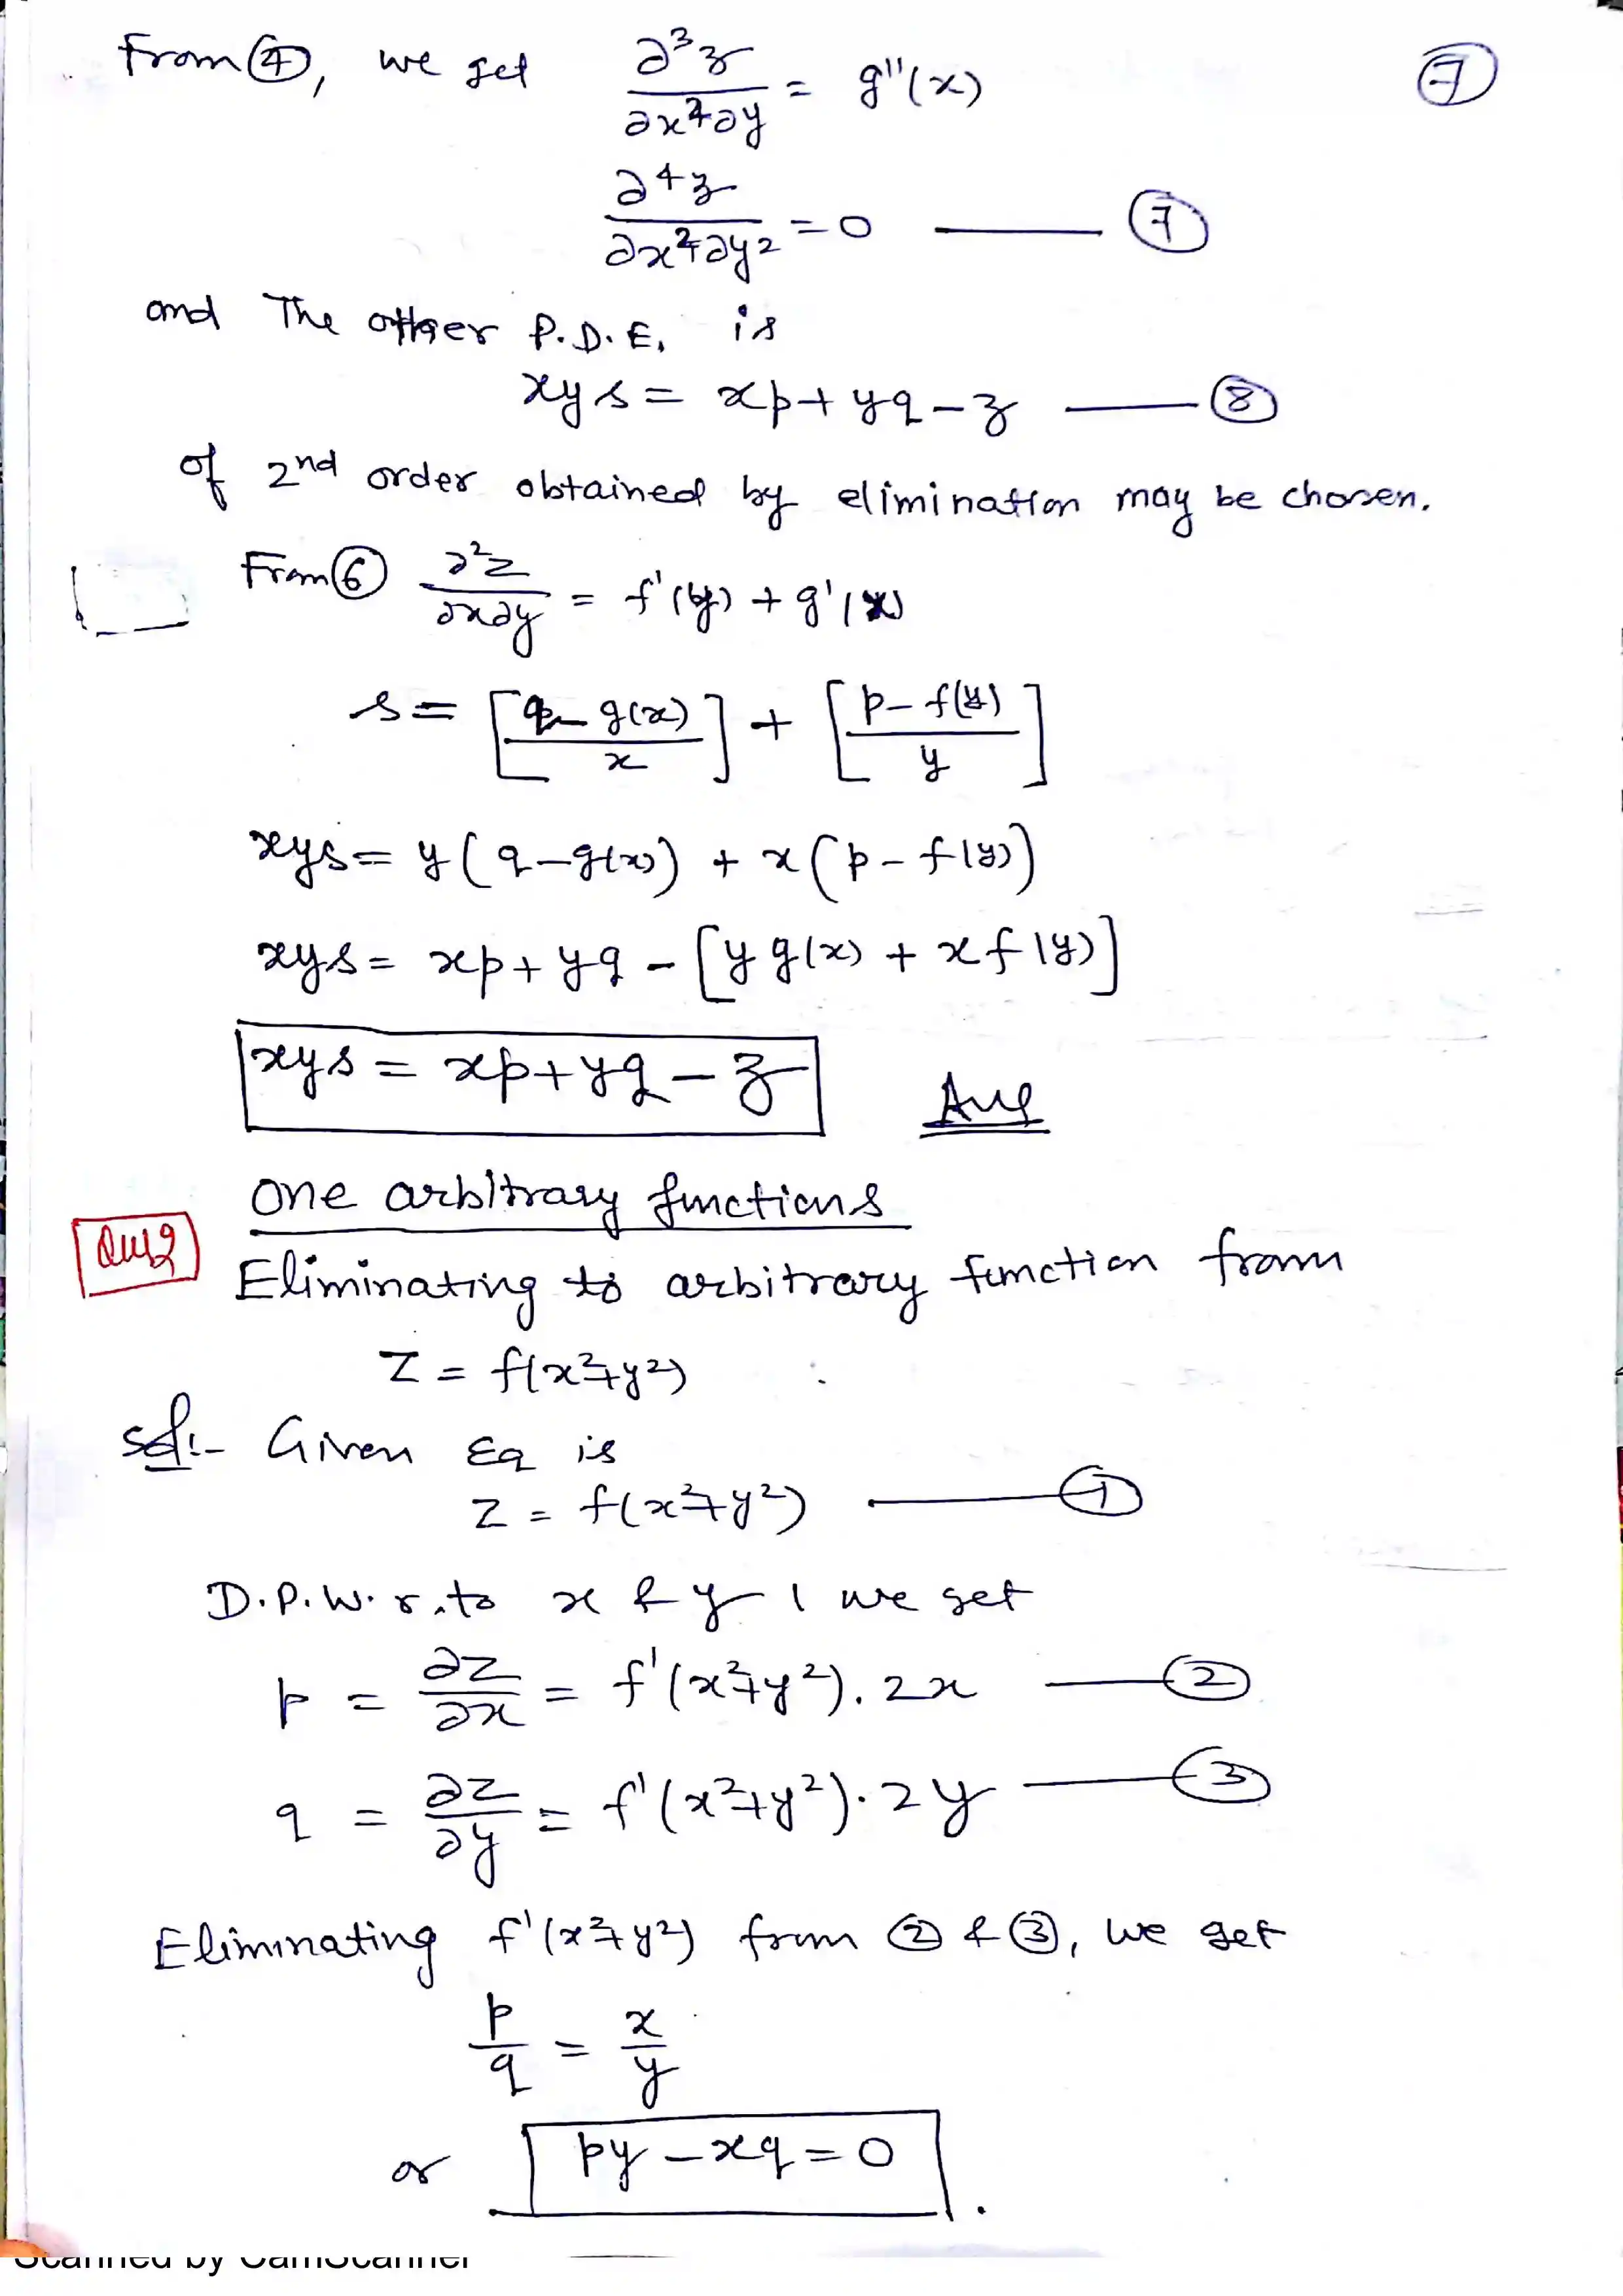 From ④, we get ∂³z/∂x²∂y = g''(x) ⑦
∂⁴z/∂x²∂y² = 0 —— ⑦
and The other P.D.E. is
xys = xp + yq - z —— ⑧
of 2nd order obtained by elimination may be chosen.
From ⑥ ∂²z/∂x∂y = f'(y) + g'(x)
s = [(q - g(x))/x] + [(p - f(y))/y]
xys = y(q - g(x)) + x(p - f(y))
xys = xp + yq - [y g(x) + x f(y)]
xys = xp + yq - z Ans
One arbitrary functions
Que2 Eliminating to arbitrary function from
Z = f(x²+y²)
Sol:- Given Eq is
Z = f(x²+y²) —— ①
D.P.W.r.to x & y, we get
p = ∂z/∂x = f'(x²+y²). 2x —— ②
q = ∂z/∂y = f'(x²+y²). 2y —— ③
Eliminating f'(x²+y²) from ② & ③, we get
p/q = x/y
or py - xq = 0.
Scanned by CamScanner